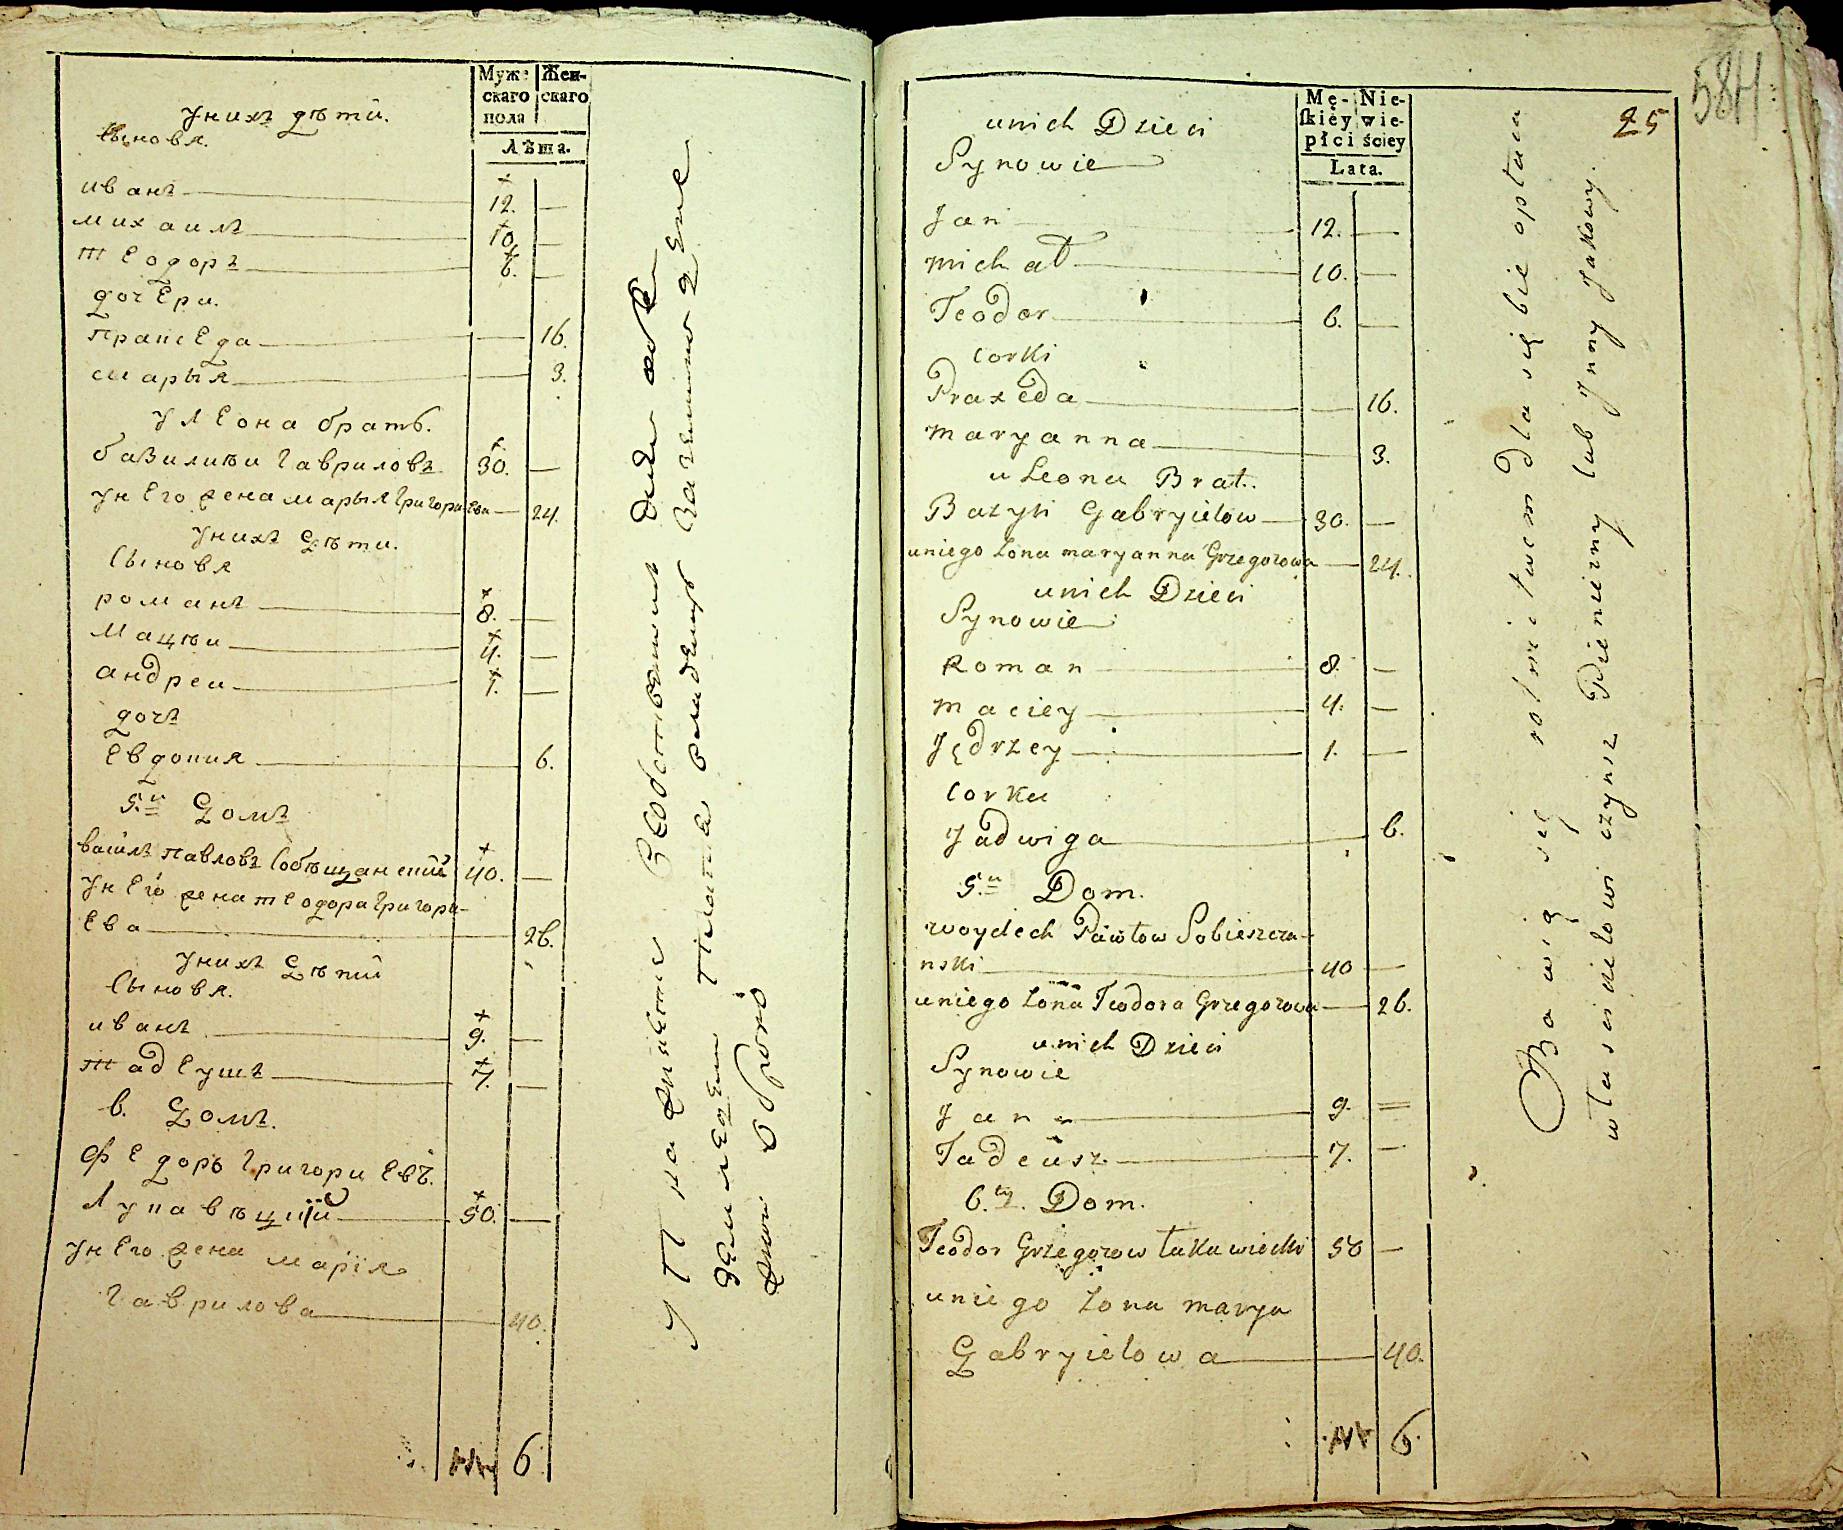 Муже-
скаго
пола
Жен-
скаго
Лѣта.
у нихъ дѣти.
сыновя.
иванъ 12.
михаилъ 10.
теодоръ 6.
дочери.
пракседа 16.
марыя 3.
у леона братъ.
базилии гавриловъ 30.
у него жена марыя григориева 24.
у нихъ дѣти.
сыновя
романъ 8.
мацѣи 4.
андреи 1.
дочъ
евдокия 6.
5.и домъ
василъ павловъ собѣщанскии 40.
у него жена теодора григори-
ева 26.
у нихъ дѣти
сыновя.
иванъ 9.
тадеушъ 7.
6. домъ.
федоръ григориевъ.
лукавѣцкии 50.
у него жена марія
гаврилова 40.
6.
584
25
Mę-
skiéy
płci
Nie-
wie-
ściey
Lata.
u nich Dzieci
Synowie
Jan 12.
michał 10.
Teodor 6.
corki
Praxeda 16.
maryanna 3.
u Leona Brat.
Bazyli Gabryielow 30.
u niego żona maryanna Grzegorowa 24.
u nich Dzieci
Synowie
Roman 8.
maciey 4.
Jędrzey 1.
corka
Jadwiga 6.
5.ti Dom.
woyciech Pawłow Sobieszcza-
nski 40
u niego żona Teodora Grzegorowa 26.
u nich Dzieci
Synowie
Jan 9.
Tadeusz 7.
6.ty. Dom.
Teodor Grzegorow Łukawiecki 50
u niego żona marya
Gabryielowa 40.
6.
Bawią się rolnictwem dla siebie opłaca
właścicielowi czynsz Pieniężny lub Jnny Jakowy.